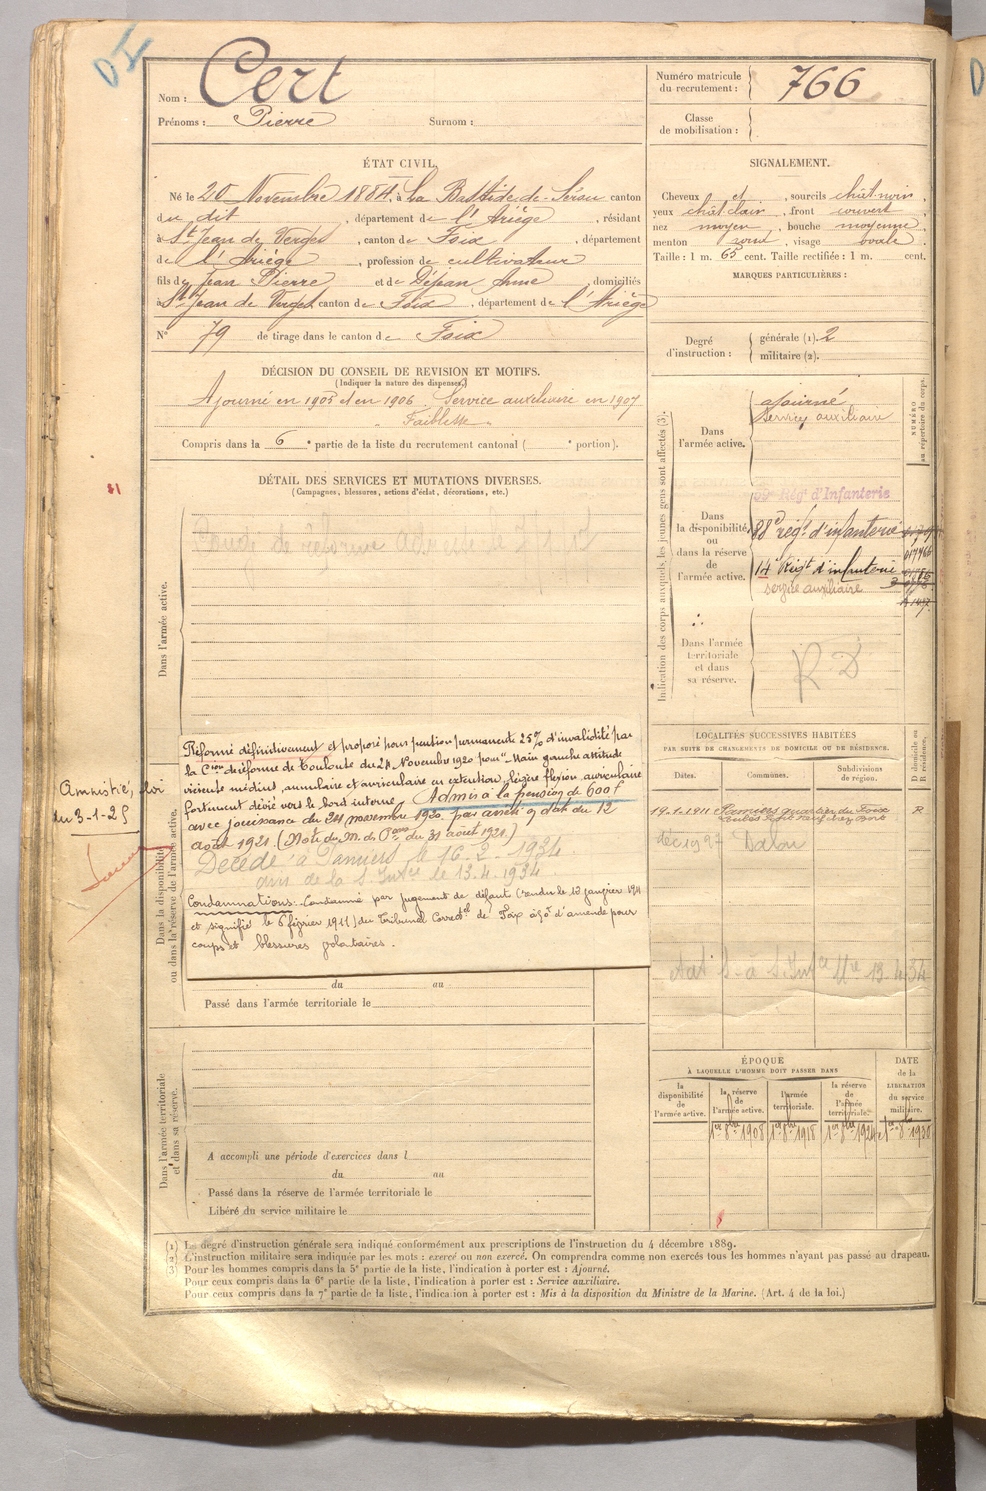 Nom : Cert
Prénoms : Pierre Surnom :
Numéro matricule du recrutement : 766
Classe de mobilisation :
ÉTAT CIVIL.
Né le 20 Novembre 1884, à La Bastide-de-Sérou canton
du dit, département de l'Ariège, résidant
à St Jean de Verges, canton de Foix, département
de l'Ariège, profession de cultivateur
fils de Jean Pierre et de Déjean Anne, domiciliés
à St Jean de Verges, canton de Foix, département de l'Ariège
N° 79 de tirage dans le canton de Foix
SIGNALEMENT.
Cheveux et, sourcils chât-noirs
yeux chât-clair, front couvert
nez moyen, bouche moyenne
menton rond, visage ovale
Taille : 1 m. 65 cent. Taille rectifiée : 1 m. cent.
MARQUES PARTICULIÈRES :
Degré d'instruction : générale (1). 2
militaire (2).
DÉCISION DU CONSEIL DE REVISION ET MOTIFS.
(Indiquer la nature des dispenses.)
Ajourné en 1905 et en 1906. Service auxiliaire en 1907
Faiblesse
Compris dans la 6e partie de la liste du recrutement cantonal ( e portion).
DÉTAIL DES SERVICES ET MUTATIONS DIVERSES.
(Campagnes, blessures, actions d'éclat, décorations, etc.)
Congé de réforme
Dans l'armée active.
Réformé définitivement et proposé pour pension permanente 25% d'invalidité par
la Cion de réforme de Toulouse du 24 Novembre 1920 pour "Main gauche attitude
vicieuse médius, annulaire et auriculaire en extention, légère flexion, auriculaire
fortement dévié vers le bord interne. Admis à la pension de 600f
avec jouissance du 24 novembre 1920, par arrêté en date du 12
août 1921 (Not. du M. des Pons du 31 août 1921.)
Décédé à Pamiers le 16.2.1934
avis de la S. Intce le 13.4.1934.
Condamnations : Condamné par jugement de défaut (rendu le 13 janvier 1911
et signifié le 6 février 1911) du Tribunal Correctel de Foix à 50f d'amende pour
coups et blessures volontaires.
Amnistié, loi
du 3-1-25
Dans la disponibilité ou dans la réserve de l'armée active.
du au
Passé dans l'armée territoriale le
Dans l'armée territoriale et dans sa réserve.
A accompli une période d'exercices dans l
du au
Passé dans la réserve de l'armée territoriale le
Libéré du service militaire le
Indication des corps auxquels les jeunes gens sont affectés (3).
NUMÉRO au répertoire du corps.
Dans l'armée active.
ajourné
Service auxiliaire
Dans la disponibilité ou dans la réserve de l'armée active.
Rég' d'Infanterie
88e régt d'infanterie
14e Régt d'infanterie
service auxiliaire
Dans l'armée territoriale et dans sa réserve.
R D
LOCALITÉS SUCCESSIVES HABITÉES
PAR SUITE DE CHANGEMENTS DE DOMICILE OU DE RÉSIDENCE.
Dates. Communes. Subdivisions de région. D domicile ou R résidence.
19.1.1911 Pamiers R
Dalou
13-4-34
ÉPOQUE
À LAQUELLE L'HOMME DOIT PASSER DANS
la disponibilité de l'armée active.
la réserve de l'armée active.
l'armée territoriale.
la réserve de l'armée territoriale.
DATE de la LIBÉRATION du service militaire.
1er 8bre 1908 1er 8bre 1918
(1) Le degré d'instruction générale sera indiqué conformément aux prescriptions de l'instruction du 4 décembre 1889.
(2) L'instruction militaire sera indiquée par les mots : exercé ou non exercé. On comprendra comme non exercés tous les hommes n'ayant pas passé au drapeau.
(3) Pour les hommes compris dans la 5e partie de la liste, l'indication à porter est : Ajourné.
Pour ceux compris dans la 6e partie de la liste, l'indication à porter est : Service auxiliaire.
Pour ceux compris dans la 7e partie de la liste, l'indication à porter est : Mis à la disposition du Ministre de la Marine. (Art. 4 de la loi.)